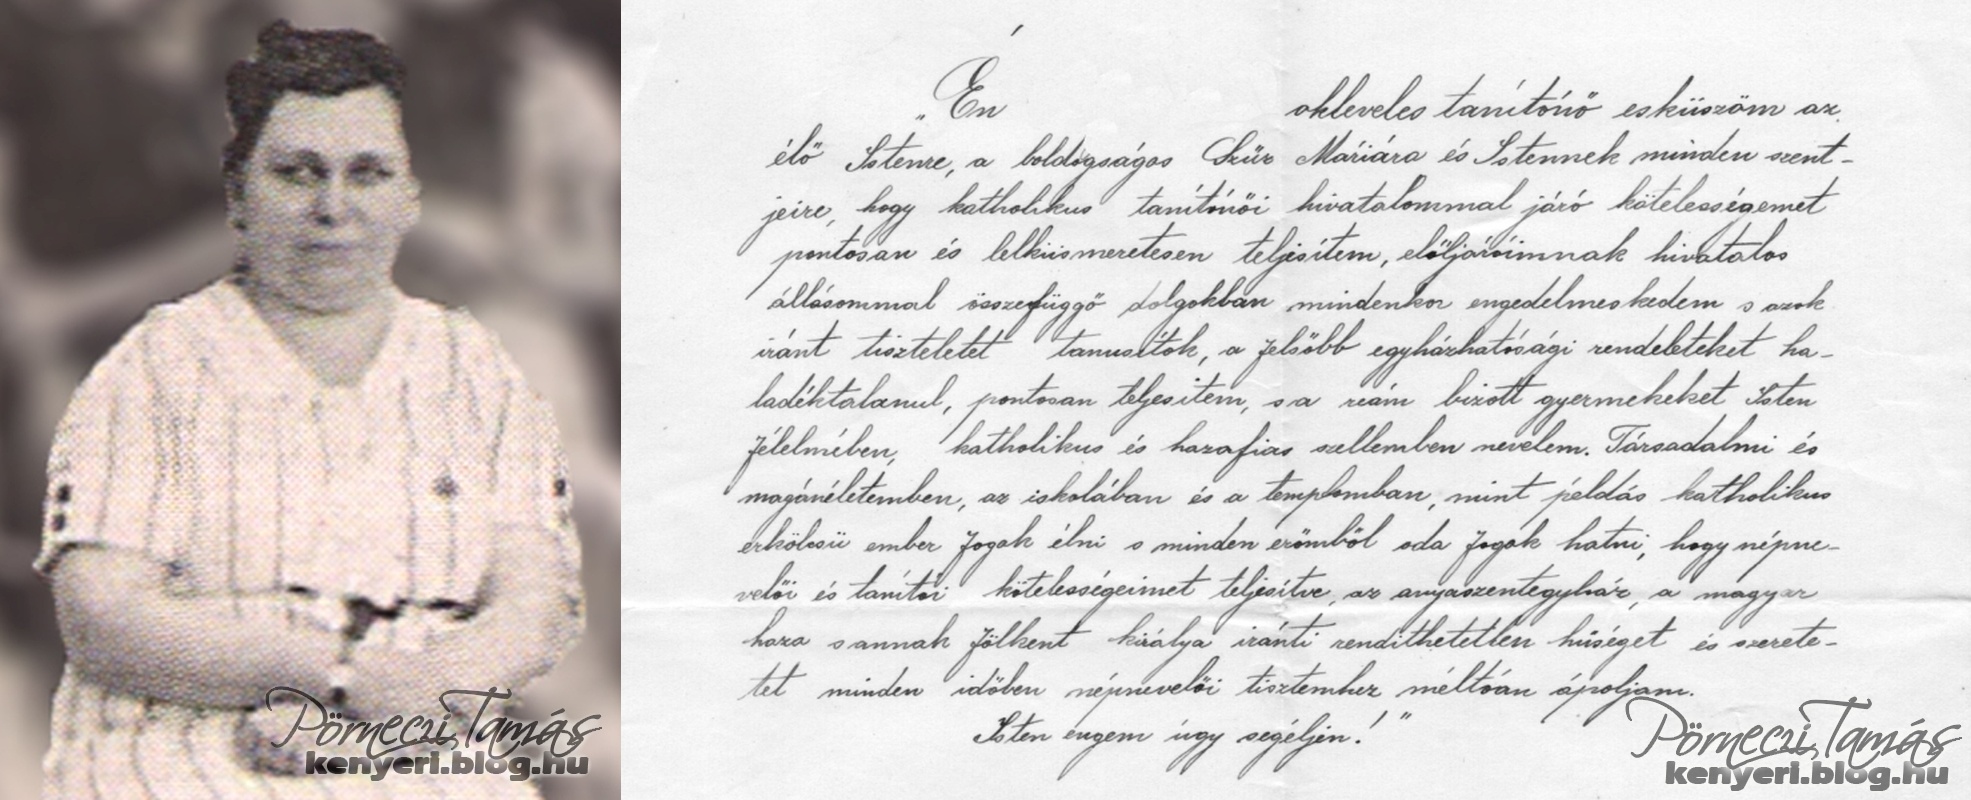 „Én okleveles tanítónő esküszöm az
élő Istenre, a boldogságos Szűz Máriára és Istennek minden szent-
jeire, hogy katholikus tanítónői hivatalommal járó kötelességemet
pontosan és lelkiismeretesen teljesítem, elöljáróimnak hivatalos
állásommal összefüggő dolgokban mindenkor engedelmeskedem s azok
iránt tiszteletet tanusítok, a felsőbb egyházhatósági rendeleteket ha-
ladéktalanul, pontosan teljesitem, s a reám bizott gyermekeket Isten
félelmében, katholikus és hazafias szellemben nevelem. Társadalmi és
magánéletemben, az iskolában és a templomban, mint példás katholikus
erkölcsü ember fogok élni s minden erőmből oda fogok hatni, hogy népne-
velői és tanítói kötelességeimet teljesítve, az anyaszentegyház, a magyar
haza s annak fölkent királya iránti rendithetetlen hűséget és szerete-
tet minden időben népnevelői tisztemhez méltóan ápoljam.
Isten engem úgy segéljen!"
Pörneczi Tamás
kenyeri.blog.hu
Pörneczi Tamás
kenyeri.blog.hu